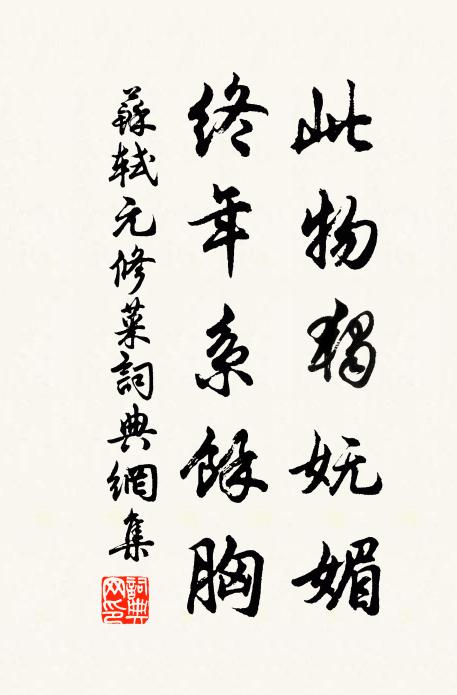 此物獨妩媚
終年系餘胸
蘇軾元修菜詞典網集
詞典网印